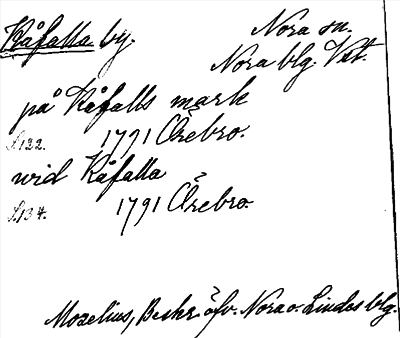 Kåfalla by.
Nora sn.
Nora blg. Vstm.
på Kåfalls mark
S.132. 1791 Örebro.
wid Kåfalla
S.134. 1791 Örebro.
Mozelius, Beskr. öfv. Nora o. Lindes blg.